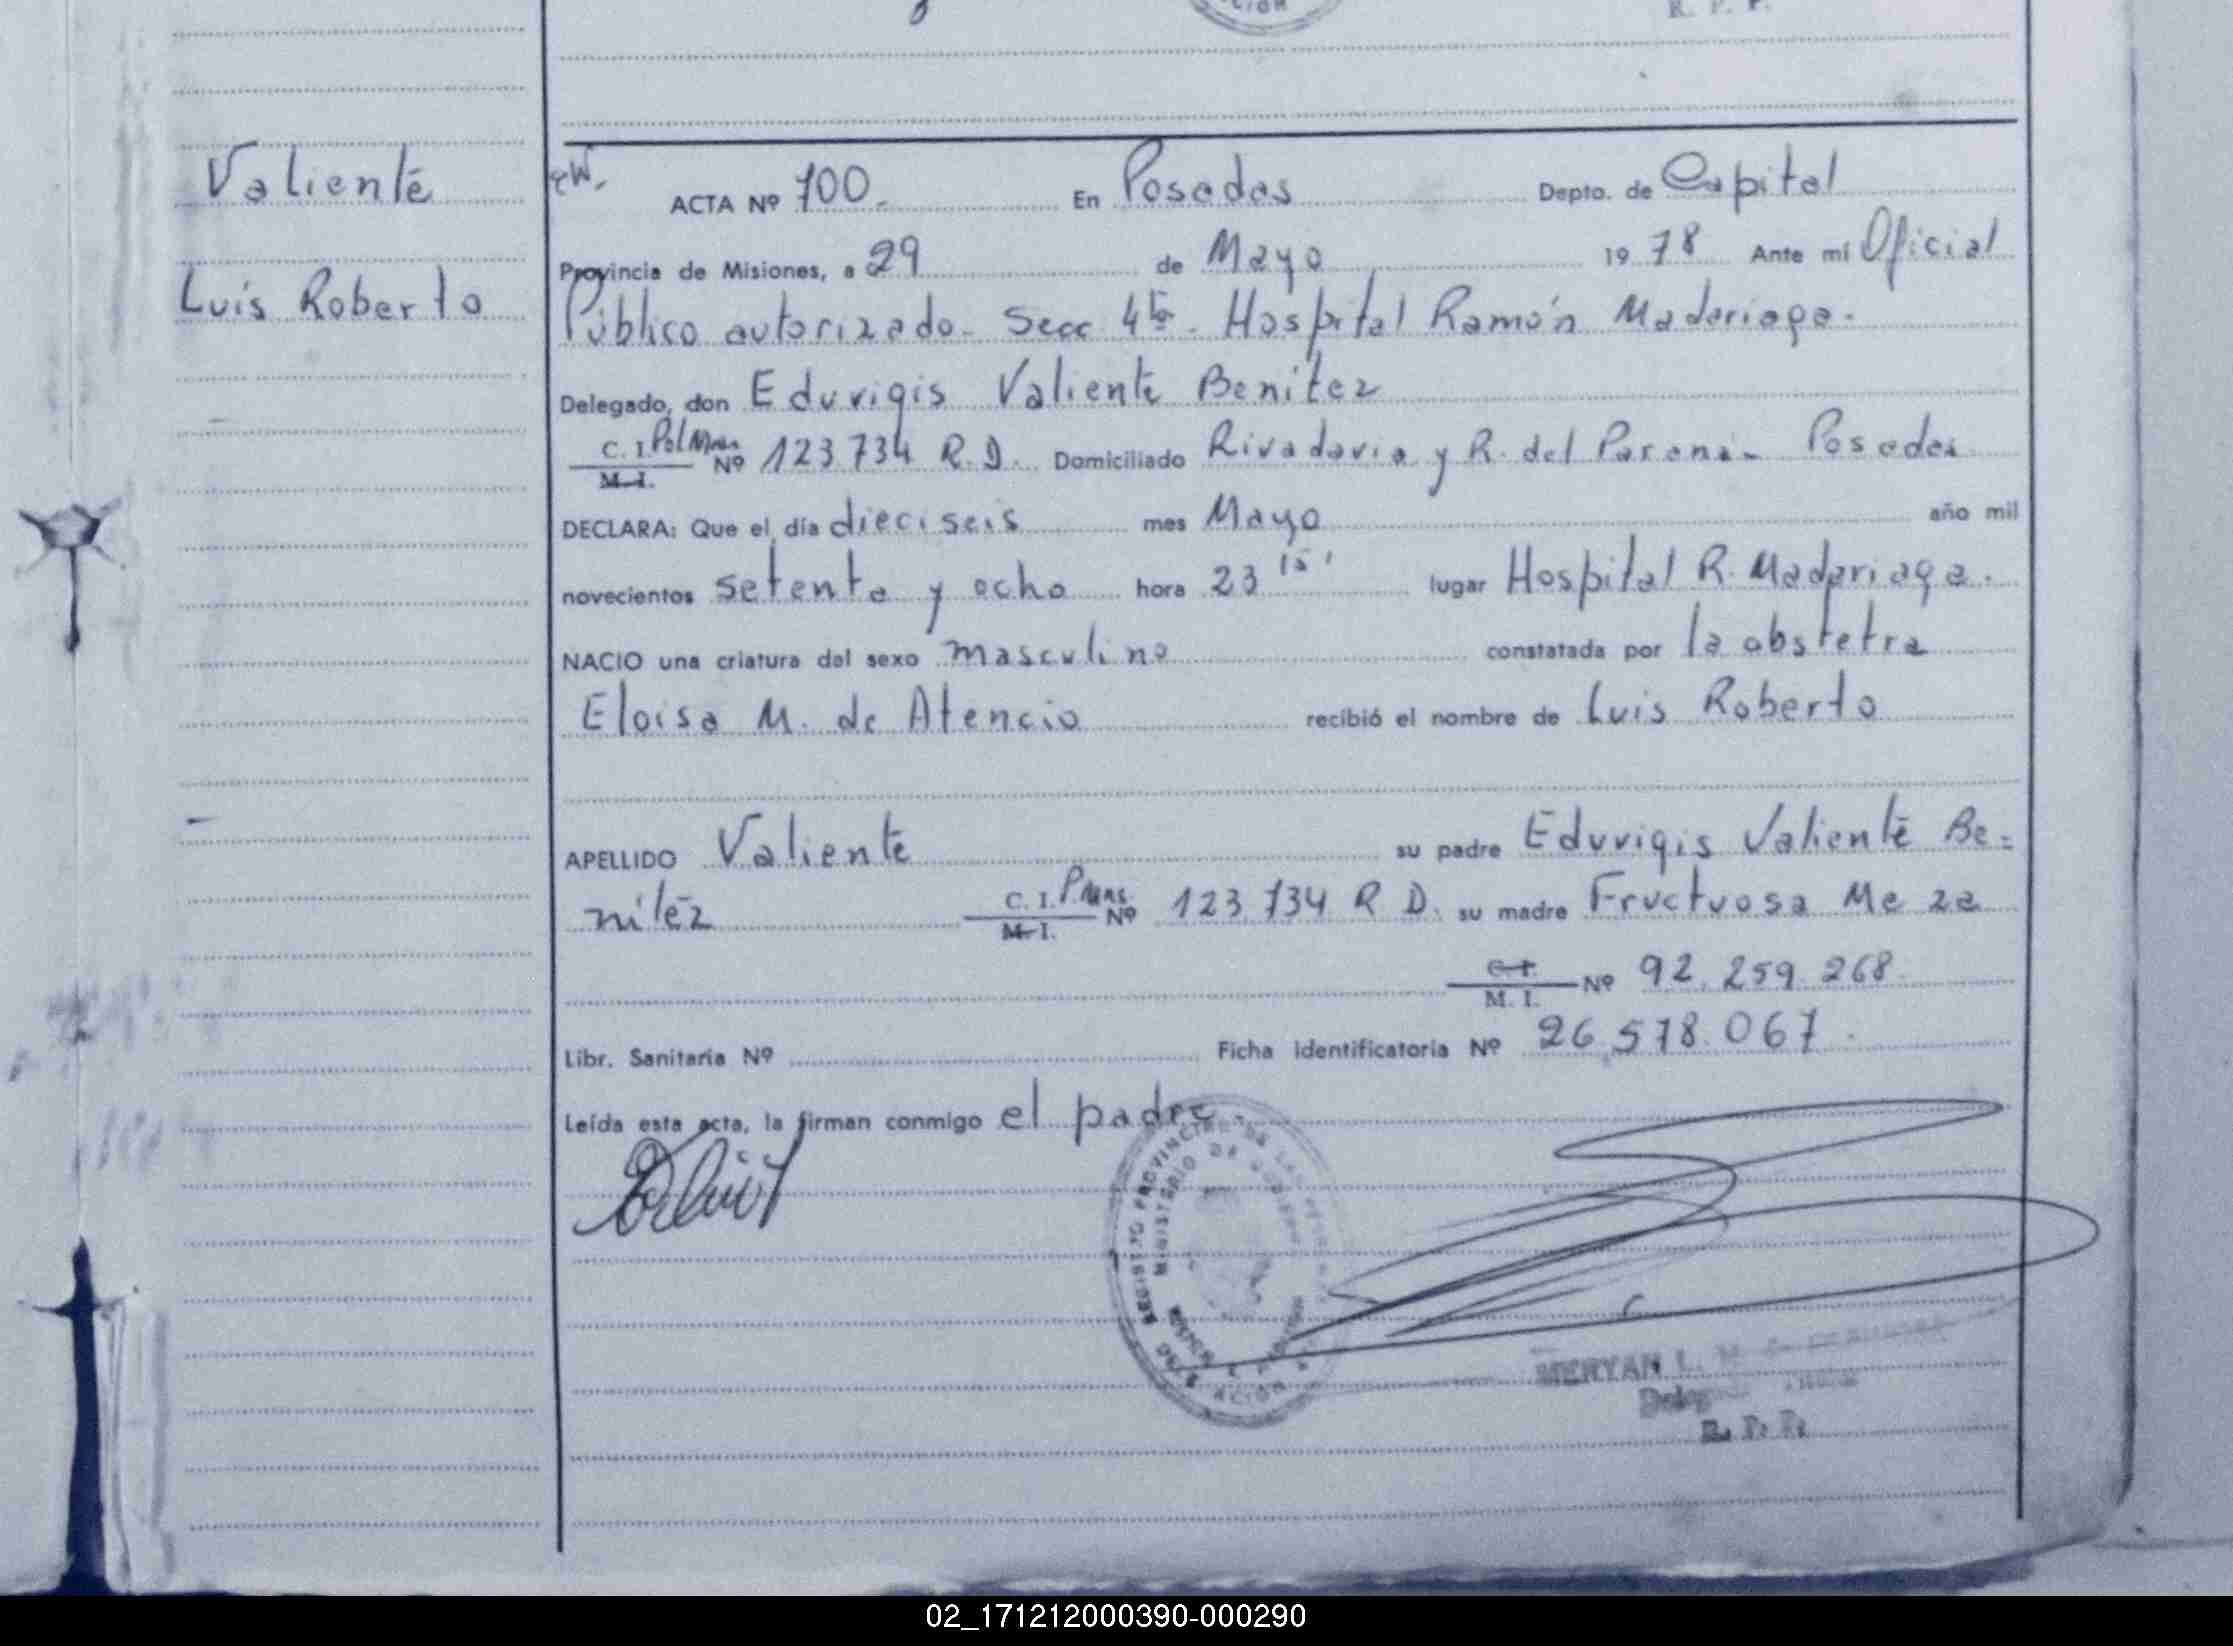 CION
R. P. P.
Valiente
Luis Roberto
ACTA Nº 100.- En Posadas Depto. de Capital
Provincia de Misiones, a 29 de Mayo 1978 Ante mí Oficial
Público autorizado. Secc 4ta. Hospital Ramón Madariaga.
Delegado, don Eduvigis Valiente Benitez
C. I. Pol Mnes. M. I. Nº 123734 R. D. Domiciliado Rivadavia y R. del Paraná - Posadas
DECLARA: Que el día dieciseis mes Mayo año mil
novecientos setenta y ocho hora 23 15' lugar Hospital R. Madariaga.
NACIO una criatura del sexo masculino constatada por la obstetra
Eloisa M. de Atencio recibió el nombre de Luis Roberto
APELLIDO Valiente su padre Eduvigis Valiente Be=
nitez C. I. P. Mnes. M. I. Nº 123.734 R D. su madre Fructuosa Meza
C. I. M. I. Nº 92.259.268
Libr. Sanitaria Nº Ficha identificatoria Nº 26.578.067.
Leída esta acta, la firman conmigo el padre
REGISTRO PROVINCIAL DE LAS PERSONAS
MINISTERIO DE GOBIERNO
MERYAN L.
R. P. P.
02_171212000390-000290